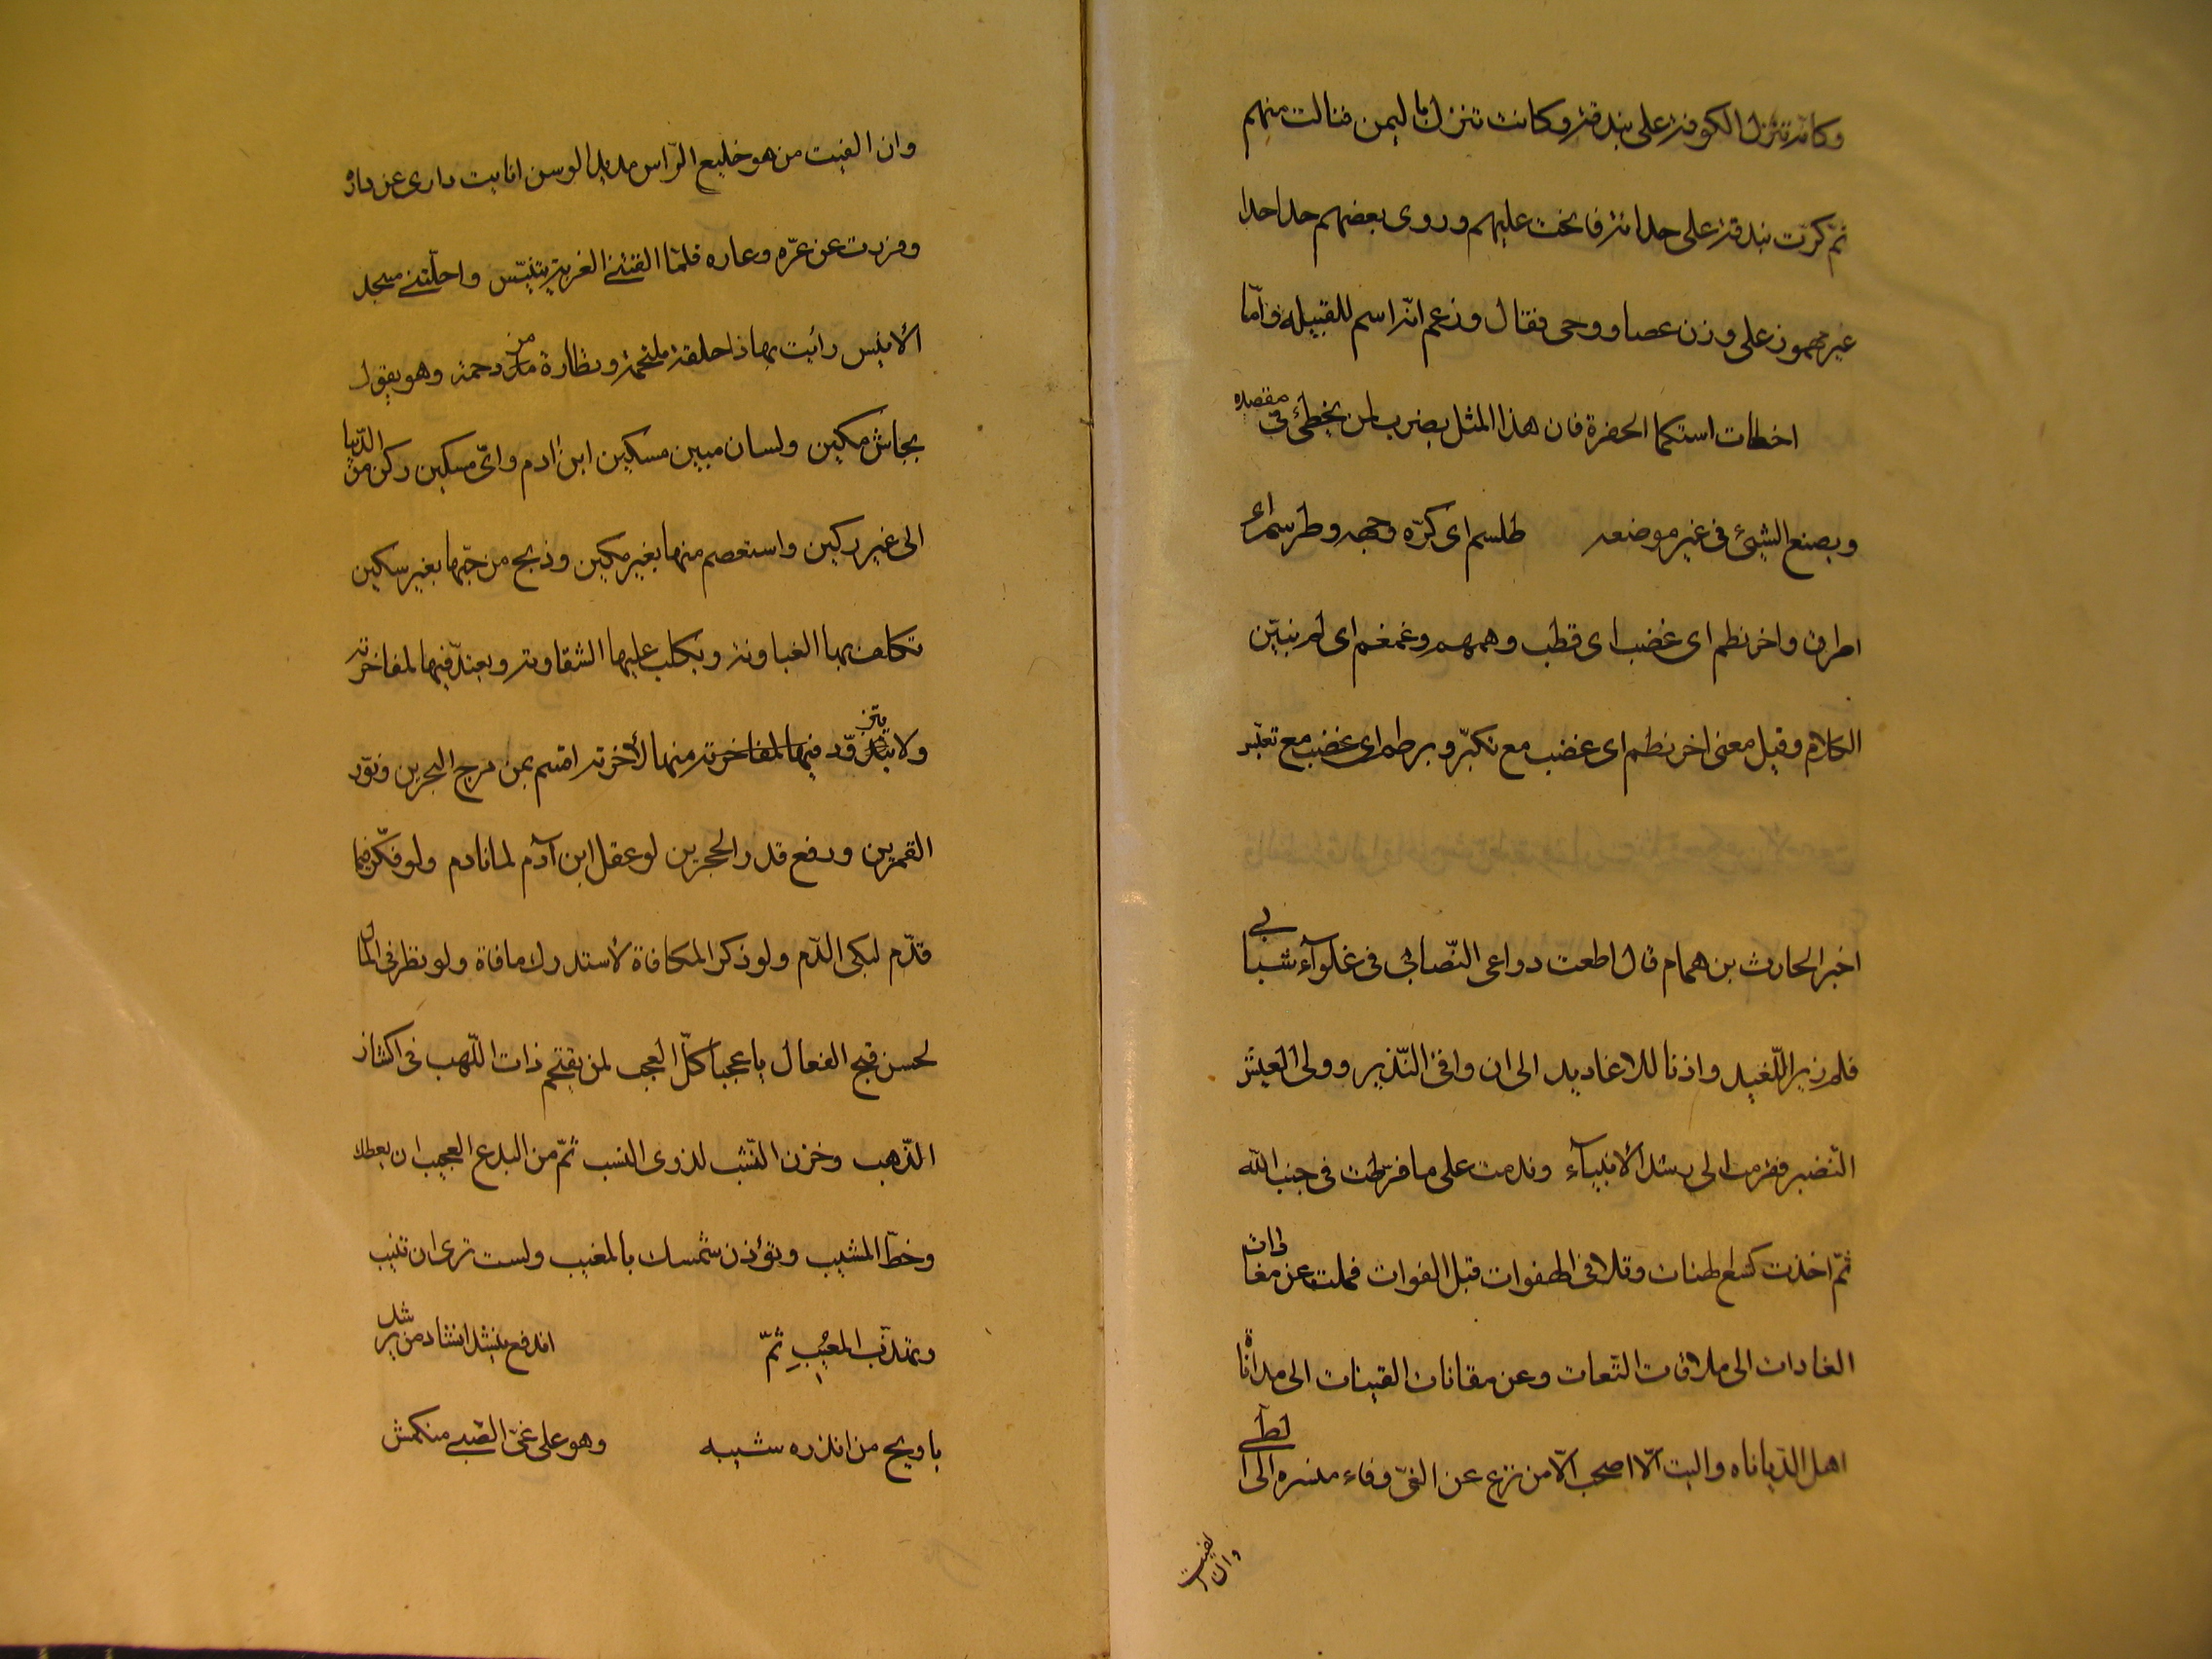 وكانه تنزل الكوفة على بندقة وكانت تنزل باليمن فنالت منهم
ثمّ كرّت بندقة على حدائة فانخت عليهم وروى بعضهم حدا حدا
غير مهموز على وزن عصا ووحى فقال وزعم انّه اسم للقبيلة فامّا
اخطات استكما الحفرة فان هذا المثل يضرب لمن يخطئ فى مقصده
ويصنع الشيئ فى غير موضعه طلسم اى كرّه وجهه وطرسم اى
اطرق واخرنطم اى غضب اى قطب وهمهم وغمغم اى لم يبيّن
الكلام وقيل معنى اخرنطم اى غضب مع تكبّر وبرطم اى غضب مع تعبّس
اخبر الحارث بن همام قال اطعت دواعى التّصابى فى غلوآء شبابى
فلم زيرا للّغيد واذنا للاغاديد الى ان وافى النّذير وولى العيش
النّضير فقرمت الى رشد الانبيآء وندمت على ما فرّطت فى جنب الله
ثمّ اخذت كسع لهنات وتلافى الهفوات قبل الفوات فملت عن مغادات
الغادات الى ملاقات التّعات وعن مقانات القينات الى مداناة
اهل الدّياناه واليت الّا اصحب الّا من نزع عن الغىّ وفاء منسره الى الطى
وان لفيت
وان الفيت من هو خليع الرّاس مديل الوسن انايت دارى عن داره
وفررت عن عرّه وعاره فلمّا القتنى الغربة بتنيّس واحلّتنى مسجد
الأنيس رأيت بها ذا حلقة ملتحمة ونظارة من مزدحمة وهو يقول
بجاش مكين ولسان مبين مسكين ابن ادم واىّ مسكين ركن من الدّنيا
الى غير ركين واستعصم منها بغير مكين وذبح من حبّها بغير سكين
تكلف بها الغباوته ويكلب عليها الشقاوته ويعتدّ فيها لمفاخرته
ولا يتزوّد فيها لمفاخرته منها لأخرته اقسم بمن مرج البحرين ونوّر
القمرين ورفع قدر الحجرين لو عقل ابن آدم لما نادم ولو فكّر فيما
قدّم لبكى الدّم ولو ذكر المكافاة لأستدرك مافاة ولو نظر فى المال
لحسن قبح الفعال يا عجبا كلّ العجب لمن يقتحم ذات اللّهب فى اكتناز
الذّهب وخزن النّشب لذوى النسب ثمّ من البدع العجيب ان يعظك
وخطّ المشيب وتؤذن شمسك بالمغيب ولست ترى ان تنيب
وتهذّب المعيب ثمّ اندفع ينشد انشاد من يرشد
يا ويح من انذره شيبه وهو على غىّ الصّبى منكمش